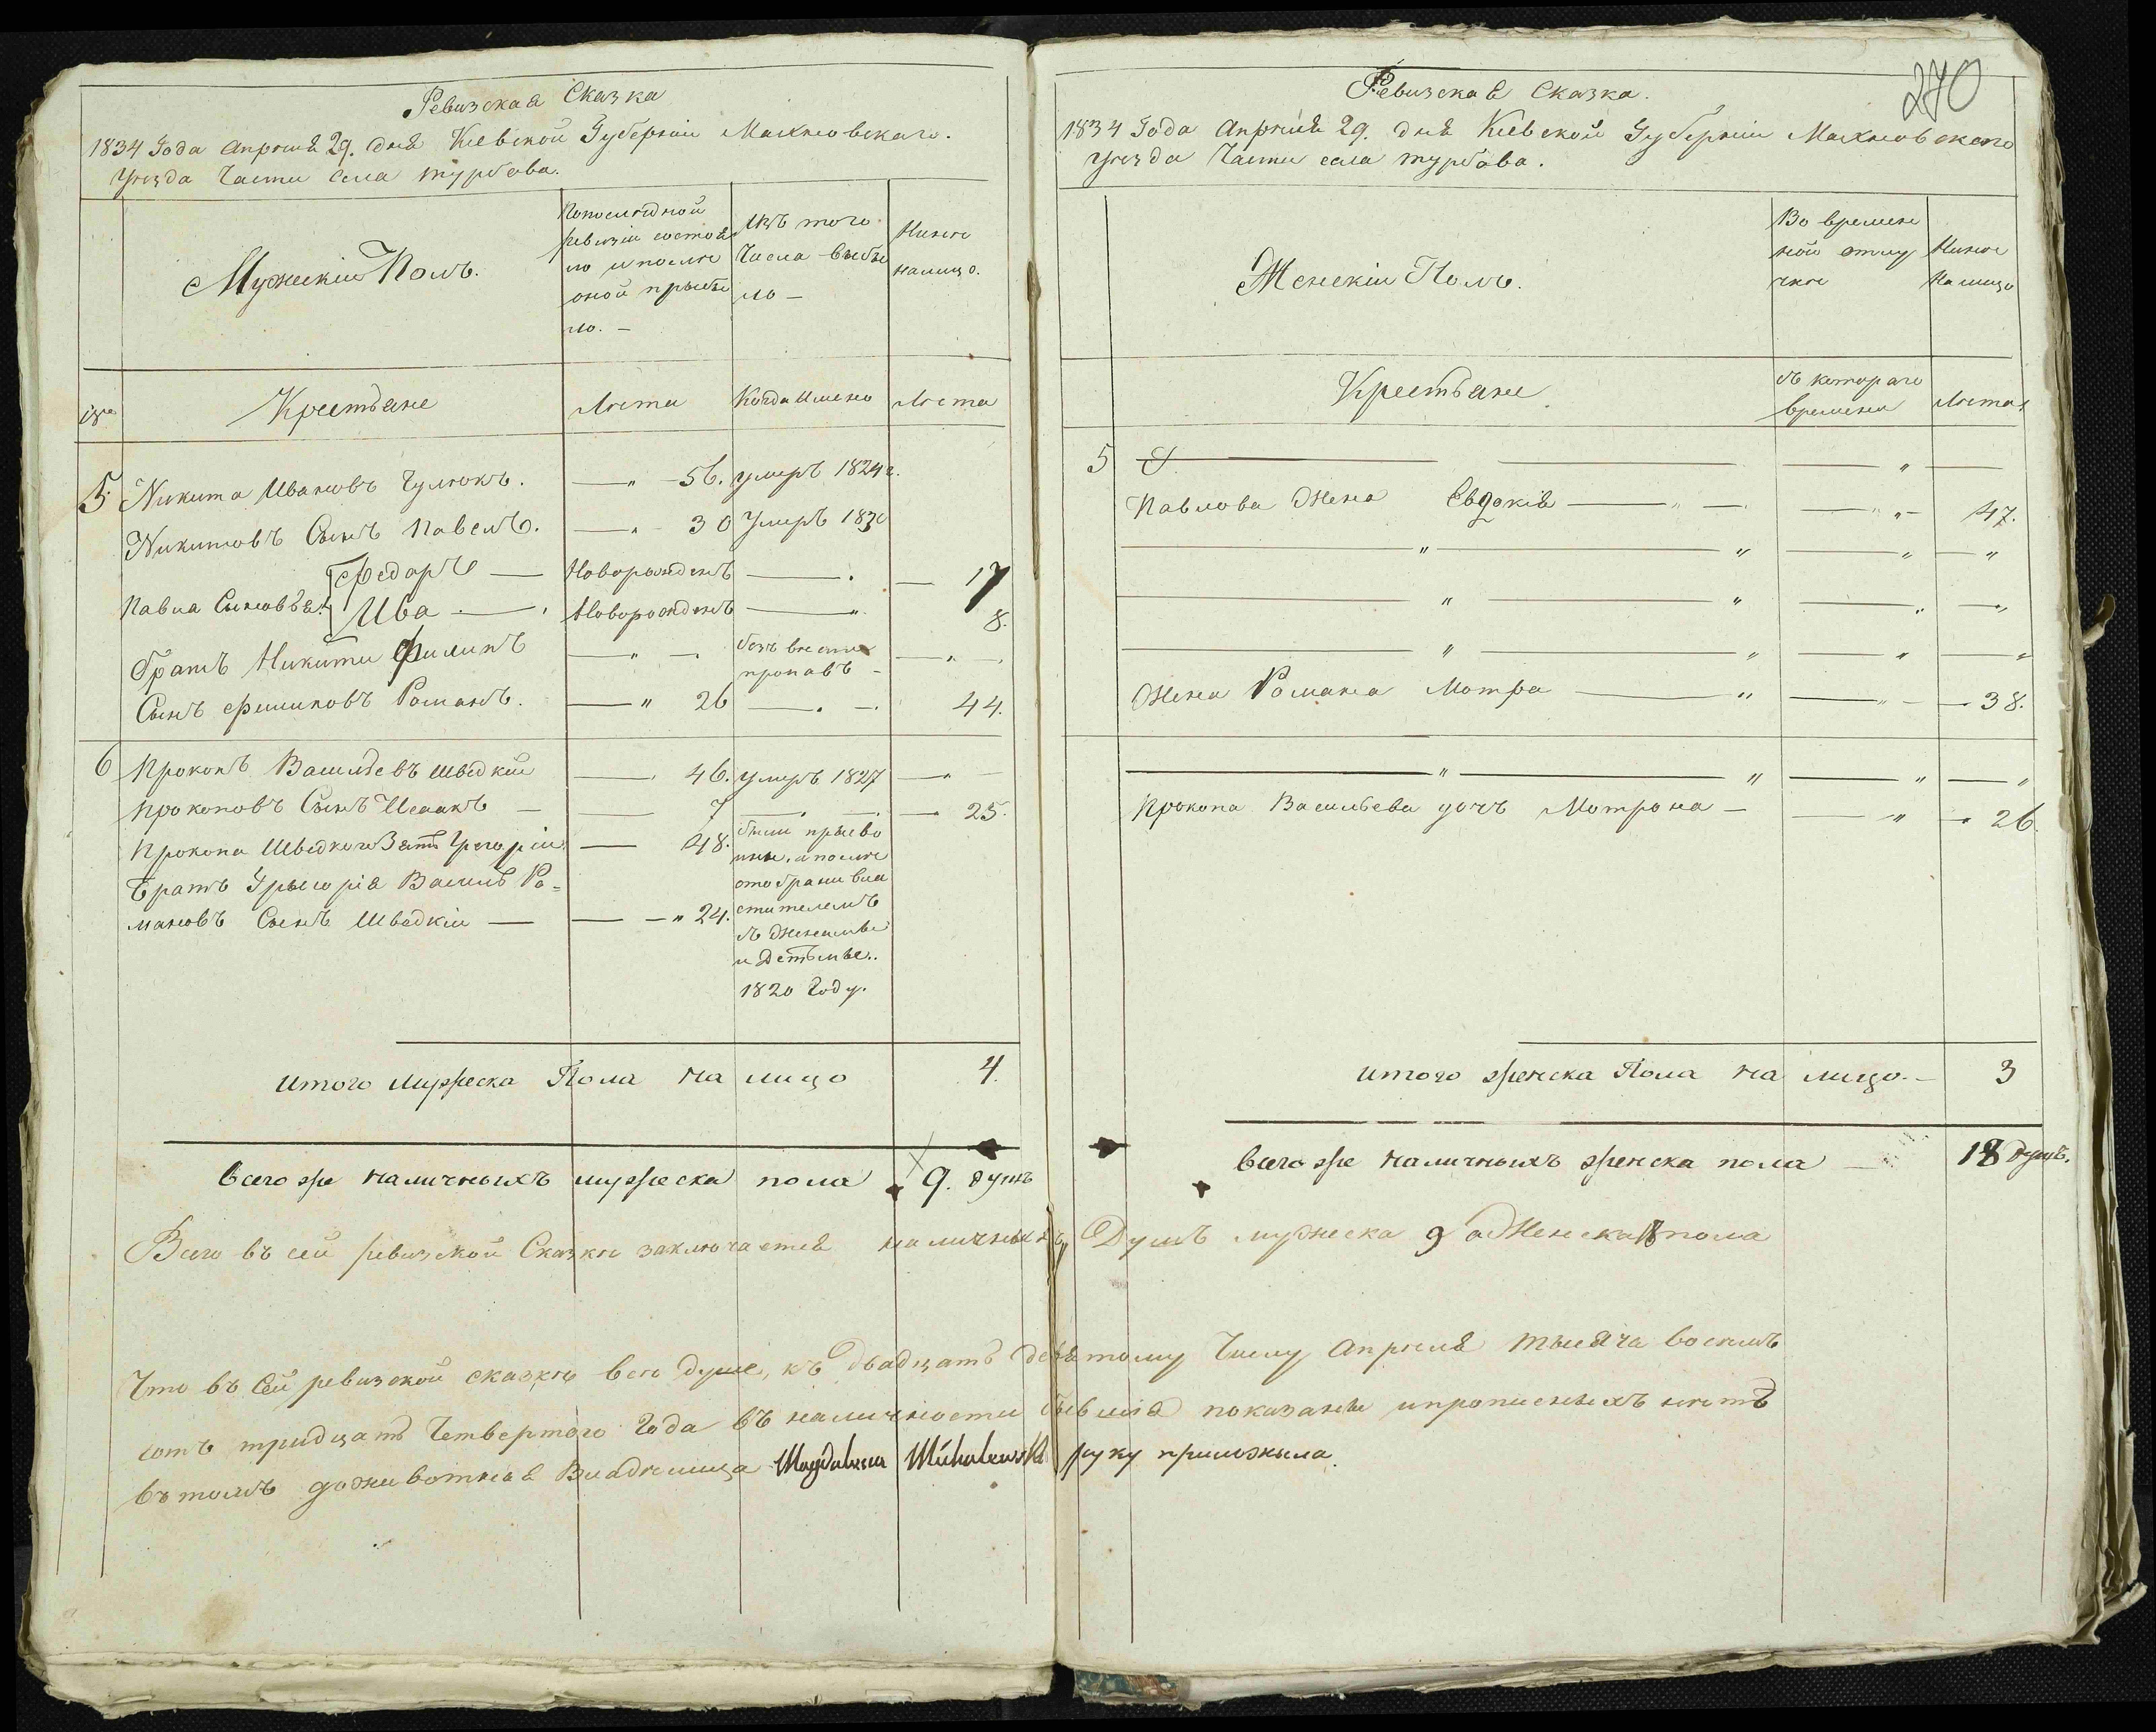 Ревизская Сказка
1834 Года Апреля 29. дня Киевской Губернии Махновскаго.
уезда Части села турбова.
Мужескій Полъ.
Попоследной
ревизіи состоя
ло и после
оной прыбы
ло. —
Изъ того
Числа выбы
ло —
Ныне
налицо.
Крестьяне
Лета
Когда Имено
Лета
5. Никита Ивановъ Чулюкъ. — " — 56. умеръ 1824 г.
Никитовъ Сынъ Павелъ. — " — 30 Умеръ 1830
Федоръ — Новорожденъ — . — 17
Павла Сыновья Ива — Новорожденъ — " 8.
Братъ Никиты Филипъ — " — безъ вести
пропавъ — — " —
Сынъ Филиповъ Романъ. — " 26 — . — 44.
6 Прокопъ Васильевъ Шведкій — 46. умеръ 1827 — " —
Прокоповъ Сынъ Исаакъ — — 7 — . — 25.
Прокопа Шведкого Зять Грегорій — 48.
Братъ Грыгорія Василь Ро=
мановъ Сынъ Шведкій — — — " 24.
были прыво
отобраны вла
стителемъ
съ Женамы
и Детьмы..
1820 Году.
итого мужеска Пола на лицо 4.
всего же наличныхъ мужеска пола 9. душъ
270
Ревизская Сказка.
1834 Года Апреля 29. дня Киевской Губерніи Махновского
уезда Части села турбова.
Женскій Полъ.
Во времен
ной отлу
чке
Ныне
На лицо
Крестьяне
съ котораго
времена
Лета
5
Павлова Жена Евдокія — " — — " — 47.
Жена Романа Мотра — " — " — 38.
Прокопа Васильева дочъ Мотрона — — " — 26.
итого женска Пола на лицо. — 3
всего же наличныхъ женска пола — 18 душъ.
Всего въ сей ревизской Сказке заключается наличныхъ Душъ мужеска 9 а Женска 18 пола
Что въ Сей ревизской сказке все души, къ двадцать девятому Числу Апреля тысяча восемь
сотъ тридцать Четвертого Года въ наличности бывшія показаны и прописныхъ нетъ
въ томъ доживотная Владелица Magdalena Michalewska руку приложыла.